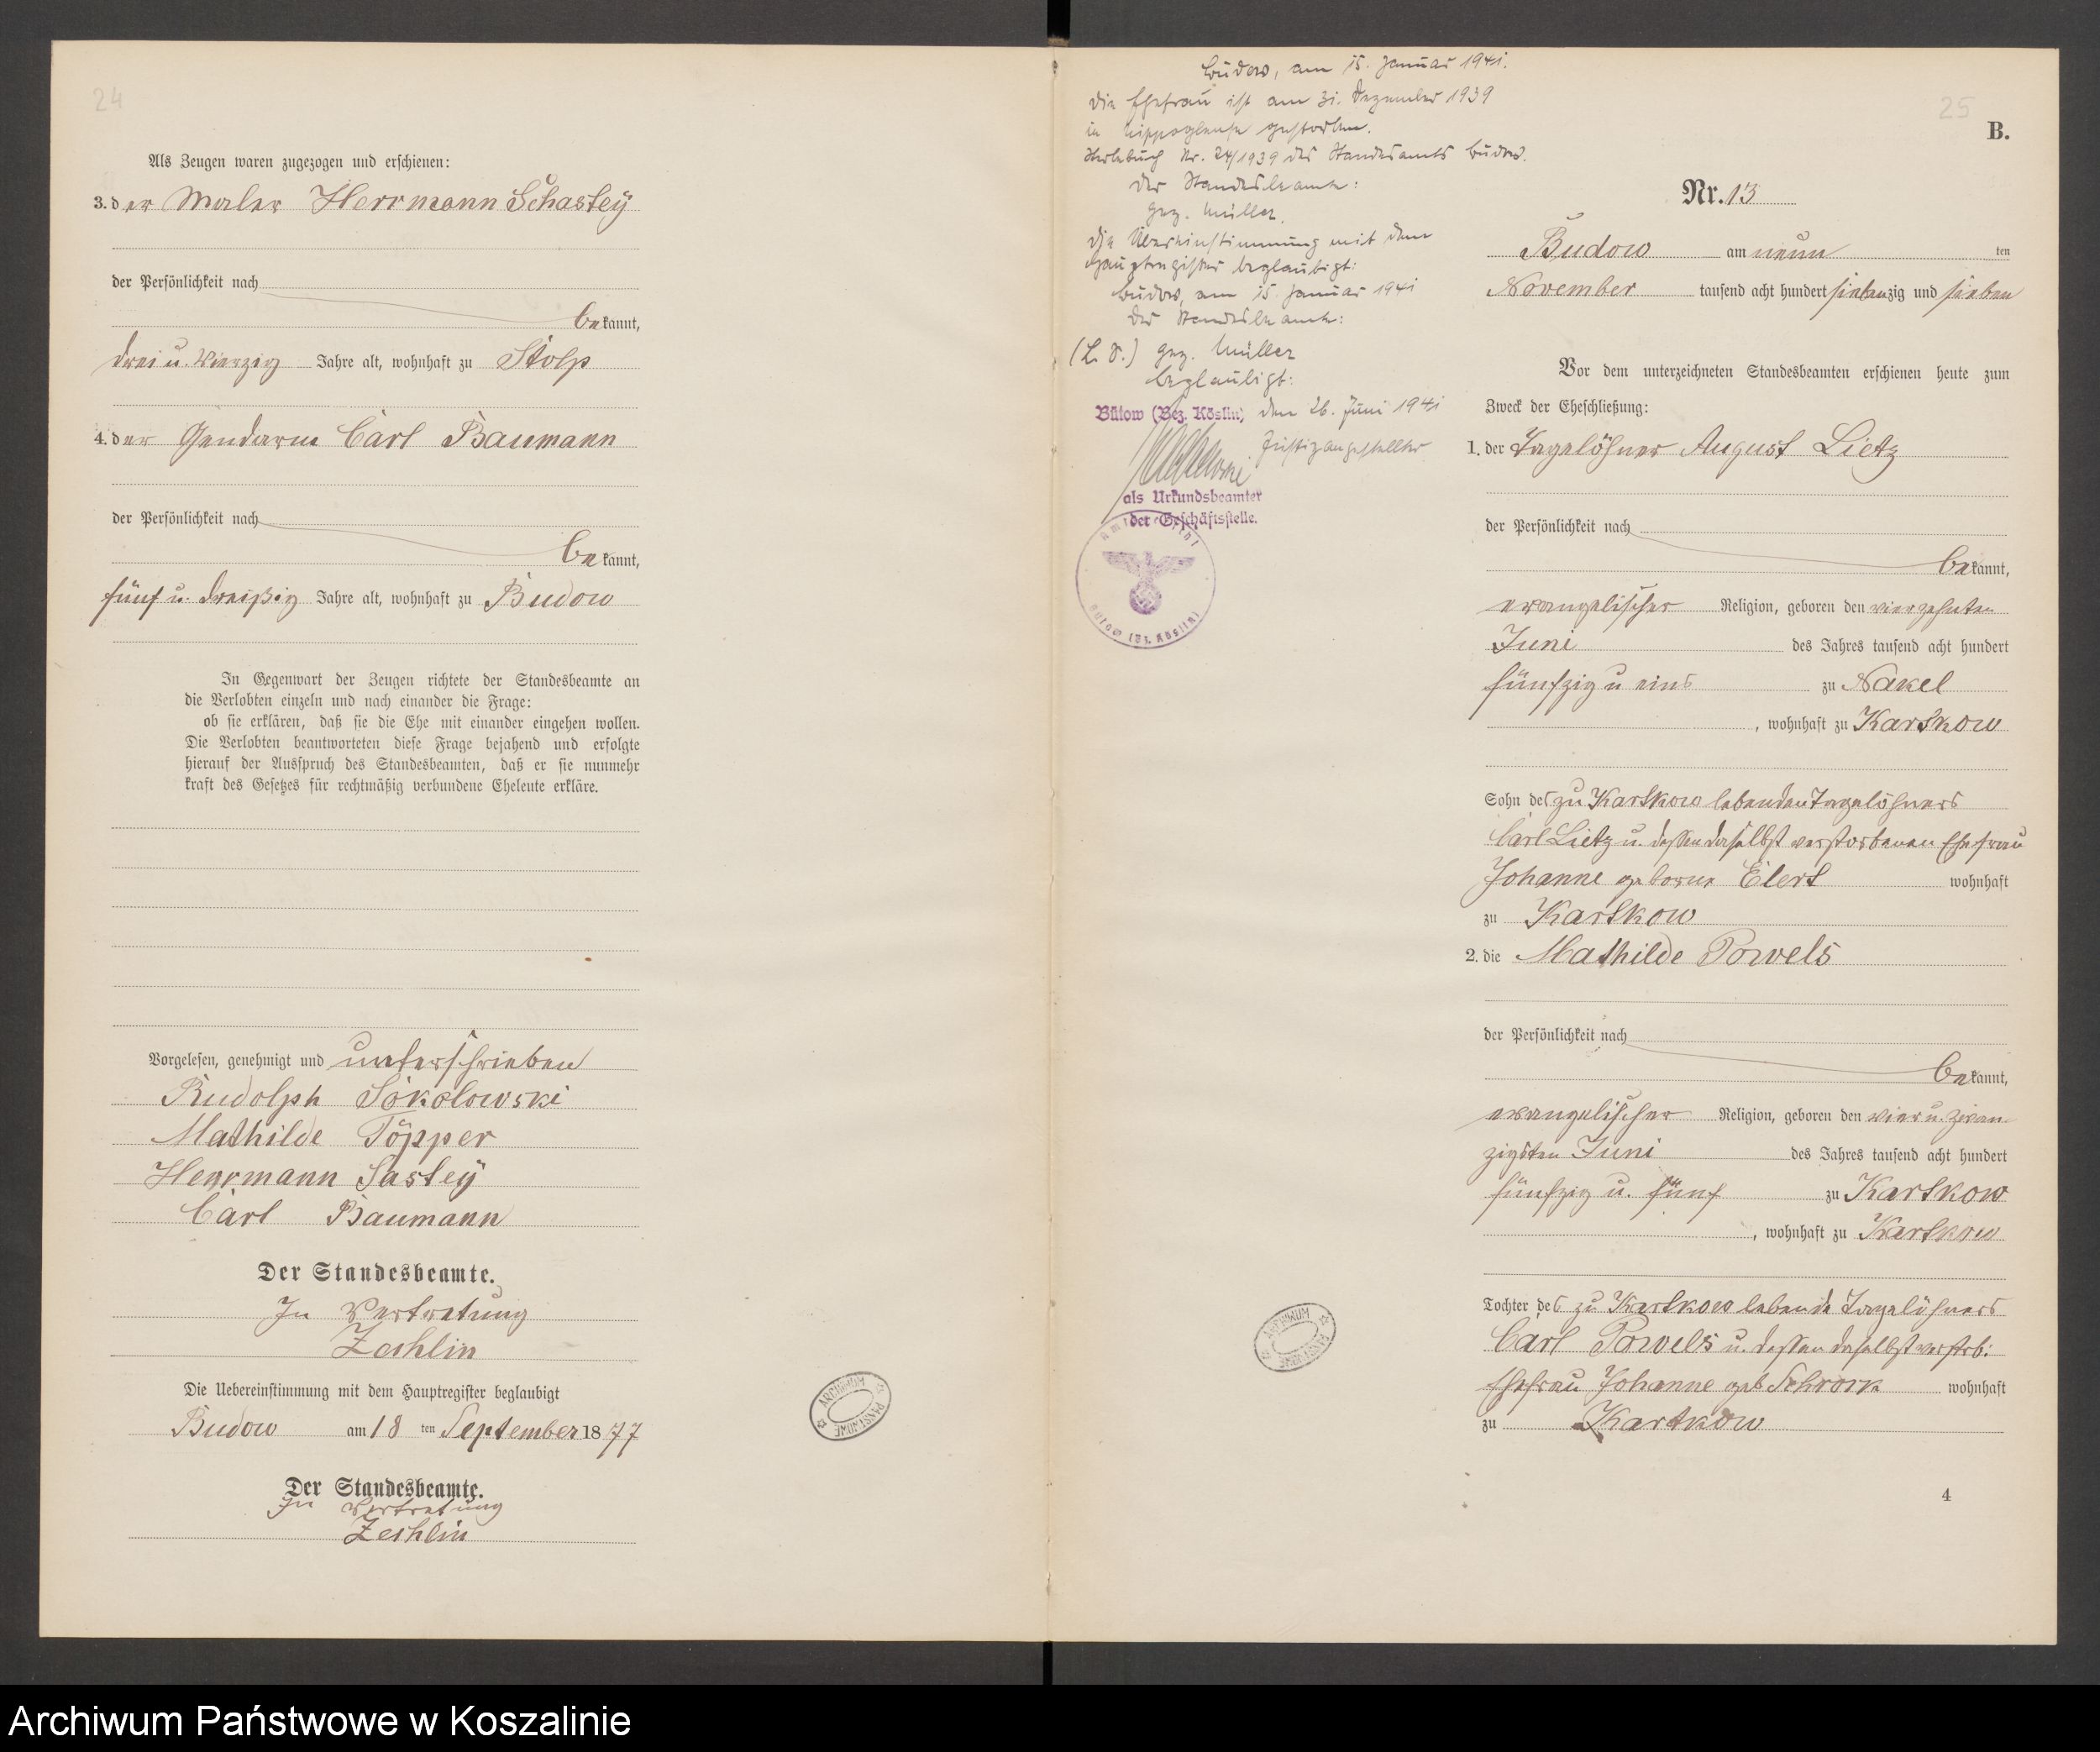 24
Als Zeugen waren zugezogen und erschienen:
3. der Maler Herrmann Schastey
der Persönlichkeit nach
bekannt,
drei u. Vierzig Jahre alt, wohnhaft zu Stolp
4. der Gendarm Carl Baumann
der Persönlichkeit nach
bekannt,
fünf u. dreißig Jahre alt, wohnhaft zu Budow
In Gegenwart der Zeugen richtete der Standesbeamte an
die Verlobten einzeln und nach einander die Frage:
ob sie erklären, daß sie die Ehe mit einander eingehen wollen.
Die Verlobten beantworteten diese Frage bejahend und erfolgte
hierauf der Ausspruch des Standesbeamten, daß er sie nunmehr
kraft des Gesetzes für rechtmäßig verbundene Eheleute erkläre.
Vorgelesen, genehmigt und unterschrieben
Rudolph Sokolowski
Mathilde Töpper
Herrmann Sastey
Carl Baumann
Der Standesbeamte.
In Vertretung
Zechlin
Die Uebereinstimmung mit dem Hauptregister beglaubigt
Budow am 18 ten September 1877
Der Standesbeamte.
In Vertretung
Zechlin
ARCHIWUM PAŃSTWOWE
Budow, am 15. Januar 1941.
Die Ehefrau ist am 31. Dezember 1939
in gestorben.
Sterbebuch Nr. 24/1939 des Standesamts Budow.
Der Standesbeamte:
gez. Müller.
Die Übereinstimmung mit dem
Hauptregister beglaubigt:
Budow, am 15. Januar 1941
Der Standesbeamte:
(L. S.) gez. Müller
beglaubigt:
Bütow (Bez. Köslin) den 26. Juni 1941
Justizangestellter
als Urkundsbeamter
der Geschäftsstelle.
Amtsgericht
Bütow (Bz. Köslin)
25
B.
Nr. 13
Budow am neun ten
November tausend acht hundert siebenzig und sieben
Vor dem unterzeichneten Standesbeamten erschienen heute zum
Zweck der Eheschließung:
1. der Tagelöhner August Lietz
der Persönlichkeit nach
bekannt,
evangelischer Religion, geboren den vierzehnten
Juni des Jahres tausend acht hundert
fünfzig u eins zu Nakel
, wohnhaft zu Kartkow
Sohn des zu Kartkow lebenden Tagelöhners
Carl Lietz u. dessen daselbst verstorbenen Ehefrau
Johanne geborne Elert wohnhaft
zu Kartkow
2. die Mathilde Powels
der Persönlichkeit nach
bekannt,
evangelischer Religion, geboren den vier u. zwan-
zigsten Juni des Jahres tausend acht hundert
fünfzig u. fünf zu Kartkow
, wohnhaft zu Kartkow
Tochter des zu Kartkow lebende Tagelöhners
Carl Powels u. dessen daselbst verstrb:
Ehefrau Johanne geb Schrock wohnhaft
zu Kartkow
4
ARCHIWUM PAŃSTWOWE
Archiwum Państwowe w Koszalinie